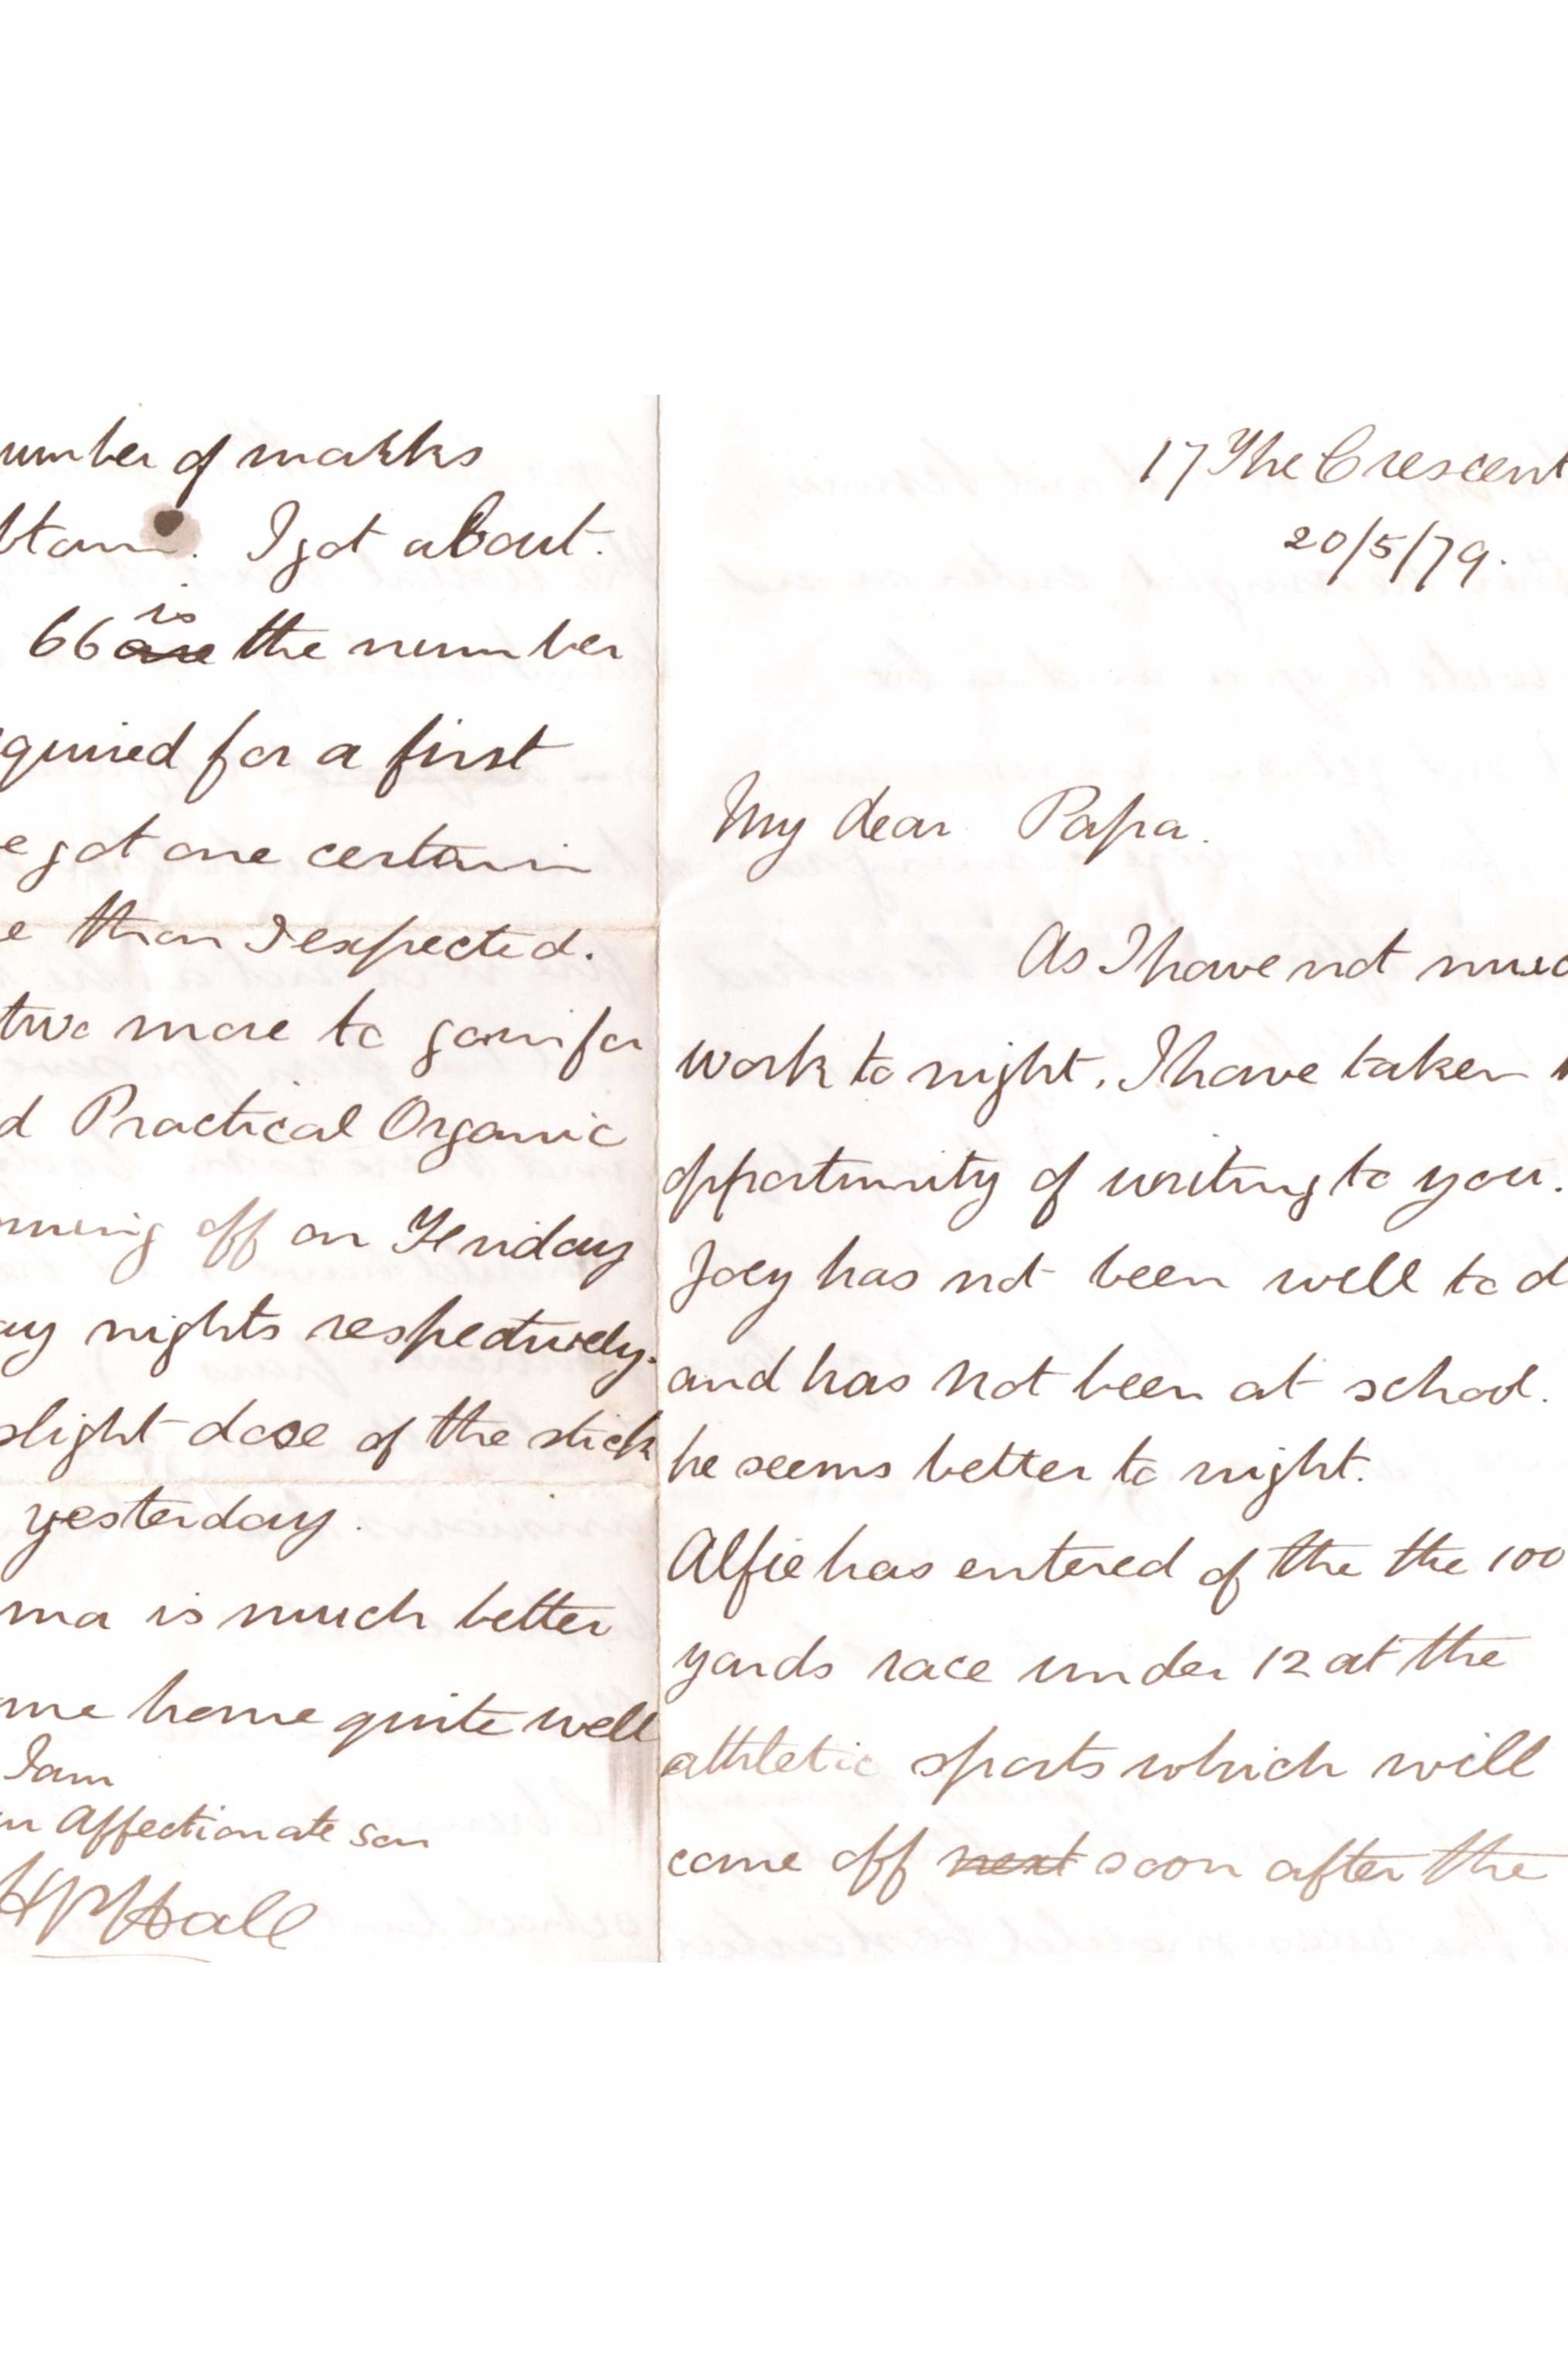 17 The Crescent
20/5/79.
My dear Papa.
As I have not muc
work to night. I have taken
opportunity of writing to you.
Joey has not been well to d
and has not been at school.
he seems better to night.
Alfie has entered of the the 100
yards race under 12 at the
athletic sports which will
come off next soon after the
umber of marks
btain. I got about.
66 are is the number
quired for a first
e got one certain
e than I expected.
two more to gain for
d Practical Organic
ming off on Friday
ay nights respectively.
slight dose of the stick
yesterday.
ma is much better
me home quite well
I am
Affectionate son
Hall